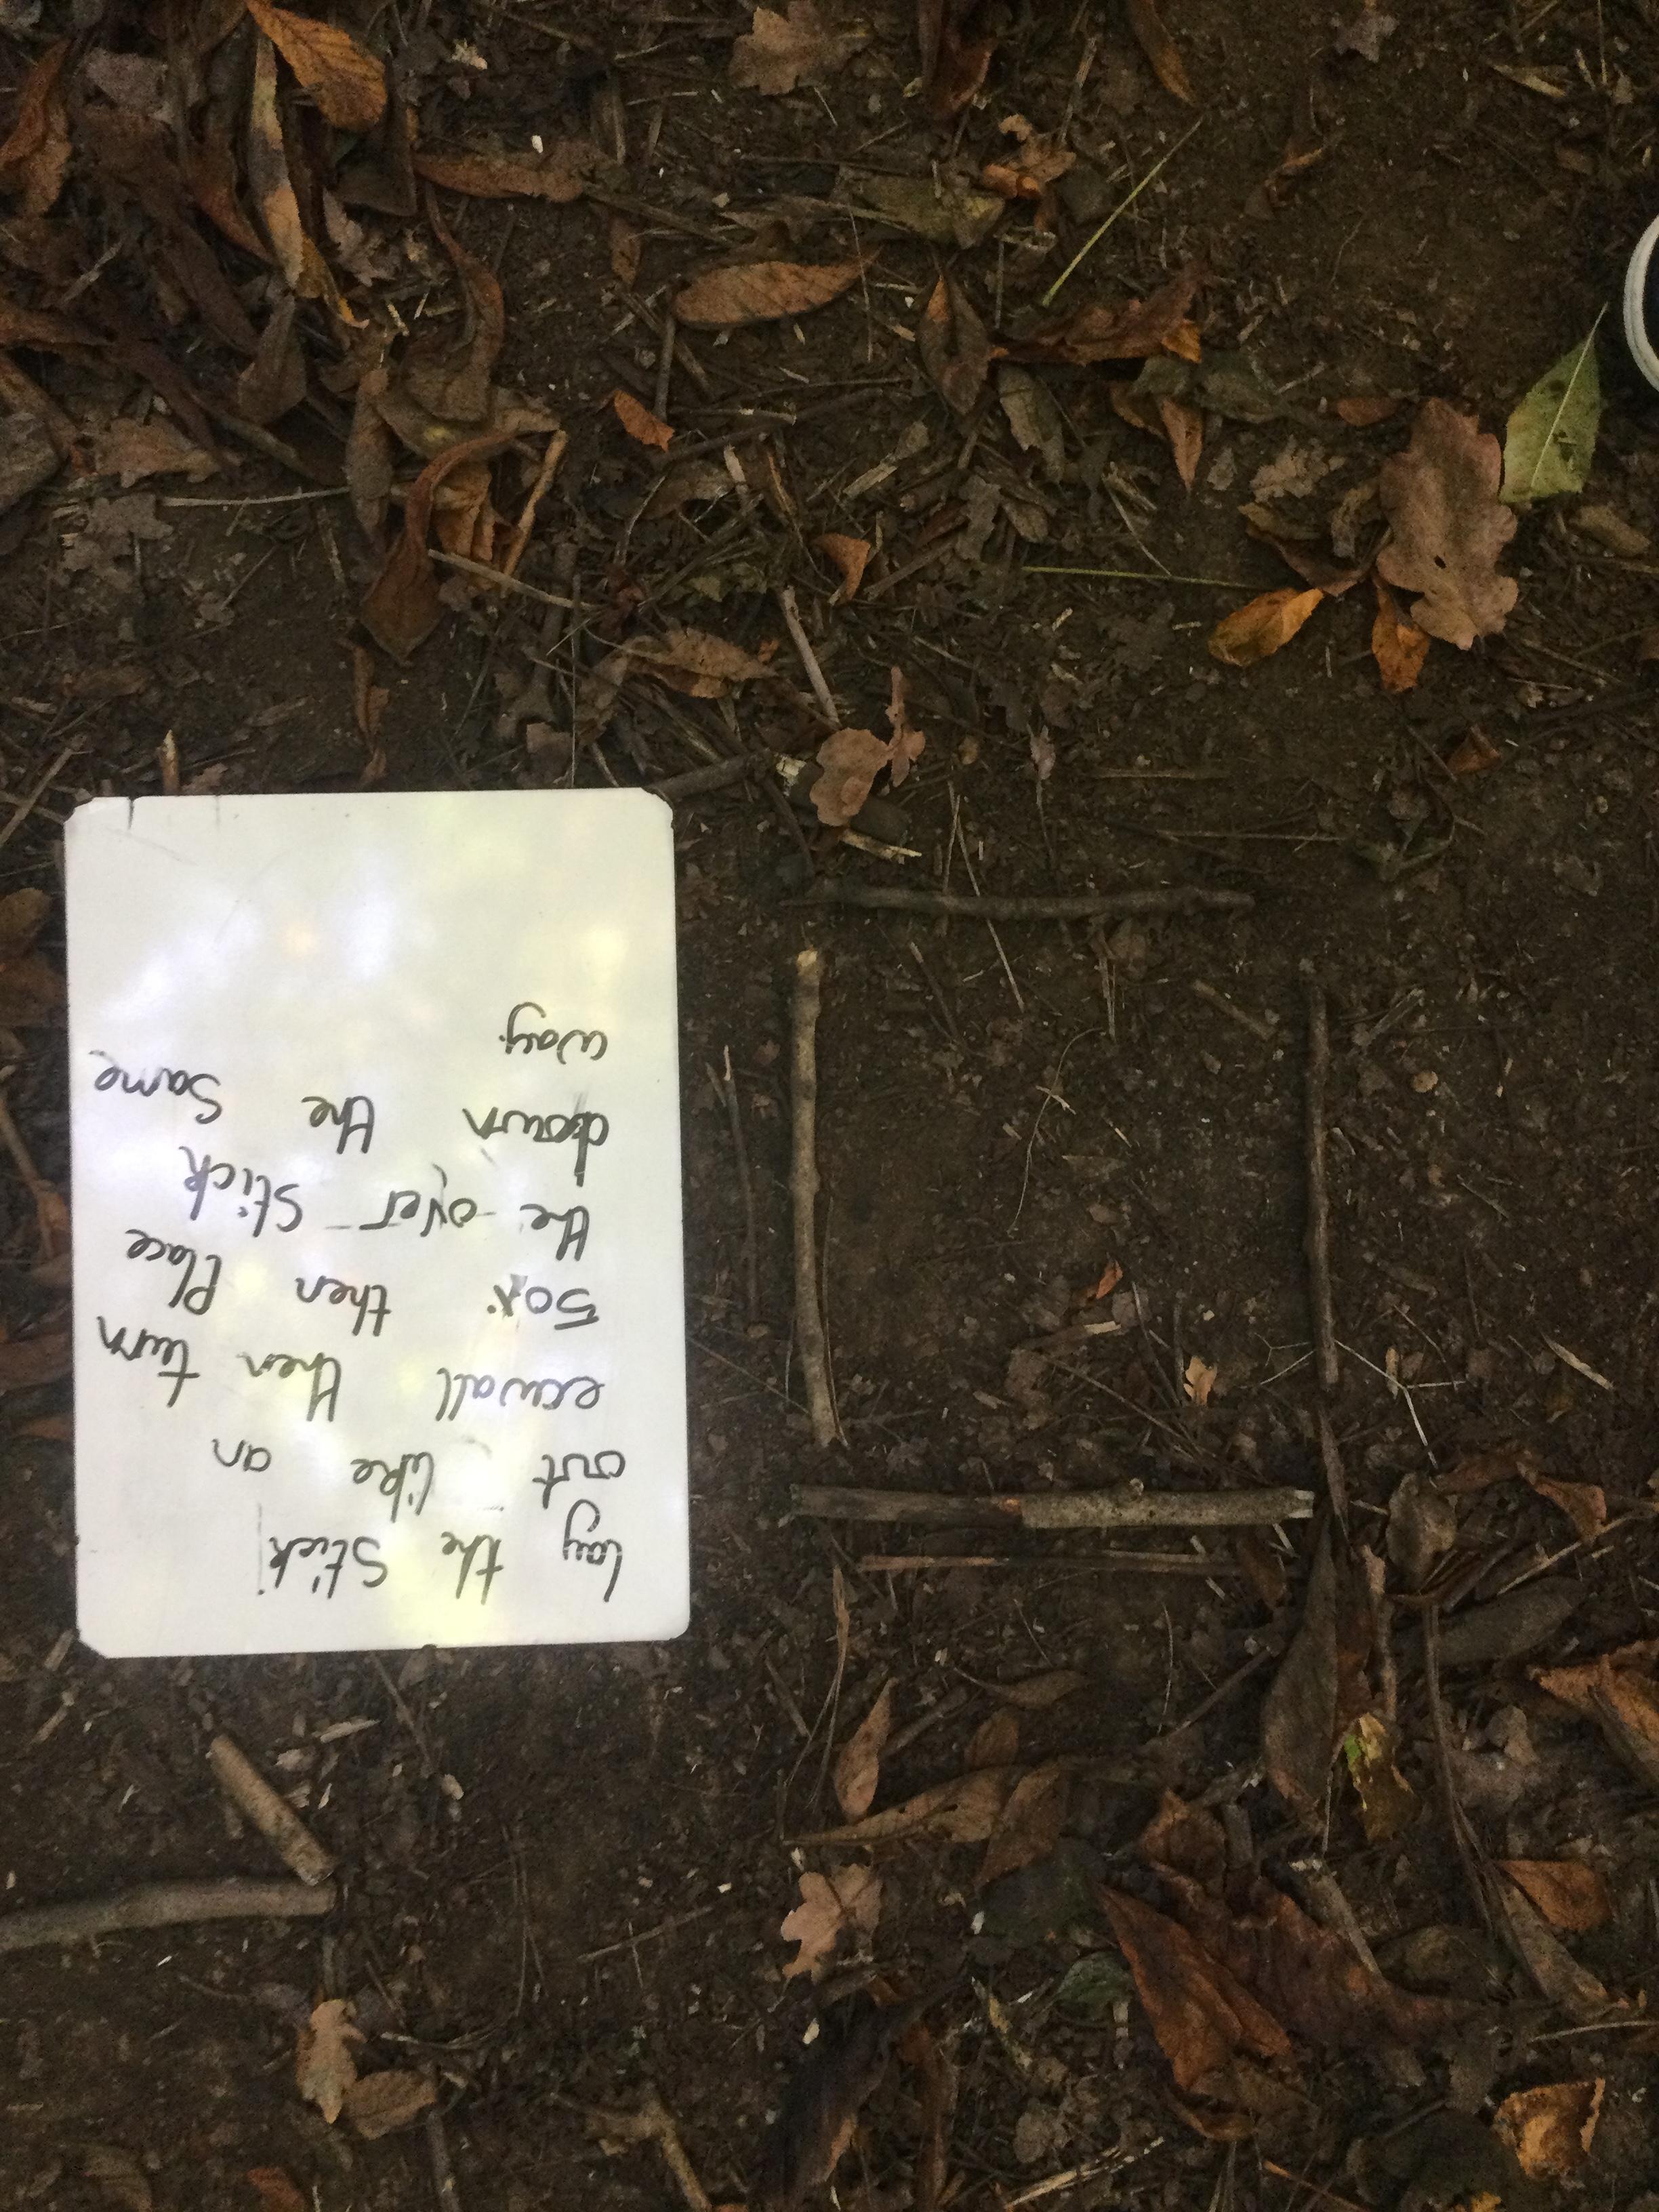 lay the Stick
out like an
ecwall then turn
50x. then Place
the over stick
down the Same
way.